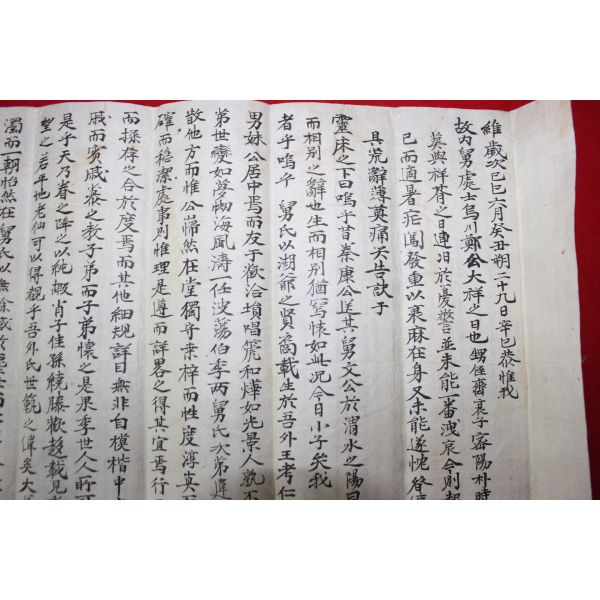 維歲次己巳六月癸丑朔二十九日辛巳恭惟我
故內舅處士烏川鄭公大祥之日也甥侄齋哀子密陽朴時
奠與祥胥之日連汨於憂並未能一番洩哀今則
已而適暑症闖發重以衰麻在身又未能遂忱
具荒辭薄奠痛哭告訣于
靈床之下曰嗚乎昔秦康公送其舅文公於渭水之陽曰
而相别之辭也生而相别猶寫懷如此况今日小子矣我
者乎嗚乎 舅氏以湖爺之賢裔載生於吾外王考仁
男妹公居中焉而友于歡洽塤唱篪和燁如光景人孰不
第世變如芟物海風濤一任波蕩伯季两舅氏次第違
散他方而惟公巋然在堂獨守桑梓而性度淳真
確而樁潔處事則惟理是遵而詳畧之得其宜焉行
而操存之合於度焉而其他細規詳目無非自模楷中
戚而賓戚恭之教子弟而子弟懷之是果季世人人所可
是乎天乃眷之降之以純嘏肖子佳孫繞膝歡趍載見
望之若平地老仙可以得覩乎吾外氏世範之偉矣大
濁而一朝怡然在舅氏以無餘感於